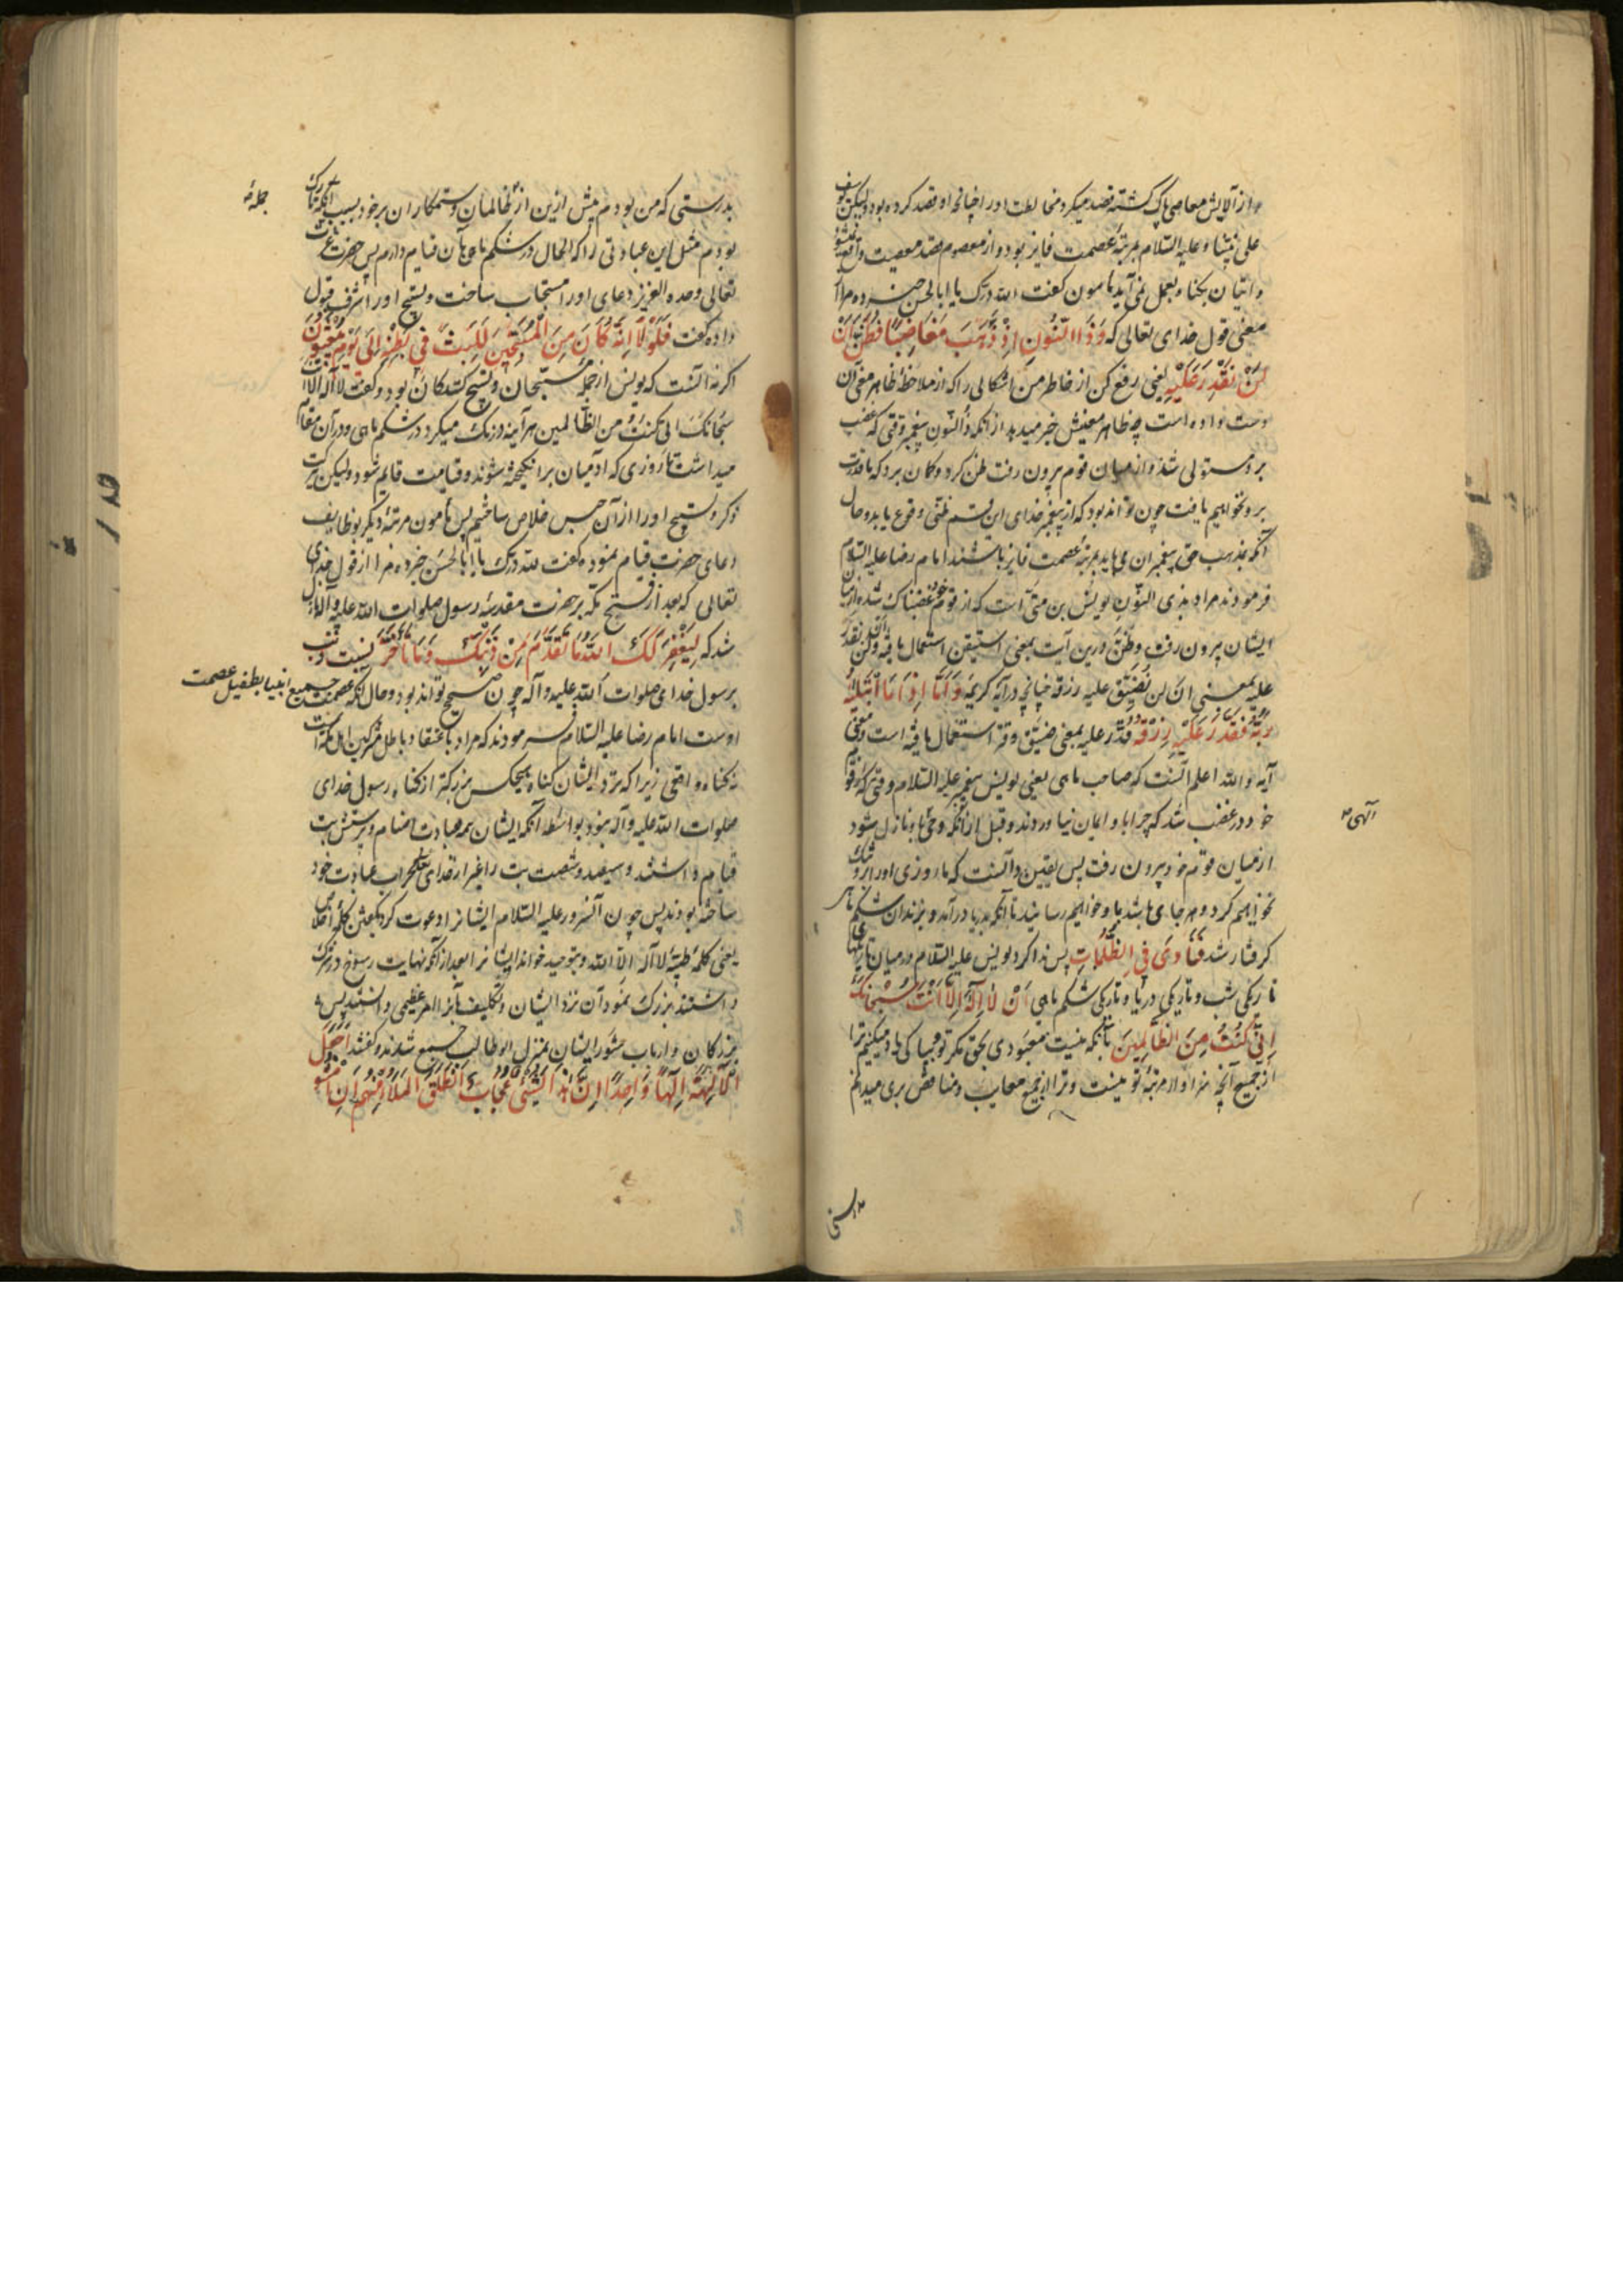 و از آلایش معاصی پاک گشته قصد میکرد مخالطت او را چنانچه او قصد کرده بود ولیکن یوسف
علی نبینا و علیه السلام بمرتبهٔ عصمت فایز بود و از معصوم قصد معصیت واقع نمیشود
و اتیان بگناه بعمل نمی‌آید مأمون گفت لله درک یا ابا الحسن خبر ده مرا از
معنی قول خدای تعالی که وَذَا النُّونِ إِذْ ذَهَبَ مُغَاضِبًا فَظَنَّ أَنْ
لَنْ نَقْدِرَ عَلَيْهِ یعنی رفع کن از خاطر من اشکالی را که از ملاحظهٔ ظاهر معنی آن
دست داده است چه ظاهر معنیش خبر میدهد از آنکه ذا النون پیغمبر وقتی که غضب
برو مستولی شد و از میان قوم بیرون رفت ظن کرد و گمان برد که ما قدرت
برو نخواهیم یافت چون تواند بود که از پیغمبر خدای این قسم ظنی وقوع یابد و حال
آنکه بمذهب حق پیغمبران می‌باید بمرتبهٔ عصمت فایز باشند امام رضا علیه السلام
فرمودند مراد بذی النون یونس بن متی است که از قوم خود غضبناک شده از میان
ایشان بیرون رفت و ظن درین آیت بمعنی استیقن استعمال یافته و لن نقدر
علیه بمعنی ان لن نضیق علیه رزقه چنانچه در آیهٔ کریمه وَأَمَّا إِذَا مَا ابْتَلَاهُ
رَبُّهُ فَقَدَرَ عَلَيْهِ رِزْقَهُ قدر علیه بمعنی ضیق و قتر استعمال یافته است و معنی
آیه و الله اعلم آنست که صاحب ماهی یعنی یونس پیغمبر علیه السلام وقتی که بر قوم
خود در غضب شد که چرا باو ایمان نیاوردند و قبل از آنکه وحی باو نازل شود
الهی
از میان قوم خود بیرون رفت پس یقین دانست که ما روزی او را برو تنگ
نخواهیم کرد و هر جای باشد باو خواهیم رسانید تا آنکه بدریا درآمد و بزندان شکم ماهی
گرفتار شد فَنَادَى فِي الظُّلُمَاتِ پس ندا کرد یونس علیه السلام در میان تاریکیهای
تاریکی شب و تاریکی دریا و تاریکی شکم ماهی أَنْ لَا إِلَهَ إِلَّا أَنْتَ سُبْحَانَكَ
إِنِّي كُنْتُ مِنَ الظَّالِمِينَ بآنکه نیست معبودی بحق مگر تو و بپاکی یاد میکنیم ترا
از جمیع آنچه سزاوار مرتبهٔ تو نیست و ترا از جمیع معایب و مناقص بری میدانم
بدرستی که من بودم پیش ازین از ظالمان و ستمکاران بر خود بسبب آنکه تارک
بودم مثل این عبادتی را که الحال در شکم ماهی بآن قیام دارم پس حضرت عزت
تعالی وحده العزیز دعای او را مستجاب ساخت و تسبیح او را شرف قبول
داده گفت فَلَوْلَا أَنَّهُ كَانَ مِنَ الْمُسَبِّحِينَ لَلَبِثَ فِي بَطْنِهِ إِلَى يَوْمِ يُبْعَثُونَ
اگر نه آنست که یونس از جمله مسبحان و تسبیح کنندگان بود و گفت لا اله الا انت
سبحانک انی کنت من الظالمین هر آینه درنگ میکرد در شکم ماهی و در آن مقام
میداشت تا روزی که آدمیان برانگیخته شوند و قیامت قایم شود ولیکن ببرکت
ذکر و تسبیح او را از آن حبس خلاص ساختیم پس مأمون مرتبهٔ دیگر بوظایف
دعای حضرت قیام نموده گفت لله درک یا ابا الحسن خبر ده مرا از قول خدای
تعالی که بعد از فتح مکه بر حضرت مقدسهٔ رسول صلوات الله علیه و آله نازل
شد که لِيَغْفِرَ لَكَ اللَّهُ مَا تَقَدَّمَ مِنْ ذَنْبِكَ وَمَا تَأَخَّرَ نسبت ذنب
برسول خدای صلوات الله علیه و آله چون صحیح تواند بود و حال آنکه عصمت جمیع انبیا بطفیل عصمت
اوست امام رضا علیه السلام فرمودند که مراد باعتقاد باطل مشرکین اهل مکه است
نه گناه واقعی زیرا که نزد ایشان گناه هیچکس بزرگتر از گناه رسول خدای
صلوات الله علیه و آله نبود بواسطه آنکه ایشان همه بعبادت اصنام و پرستش بت
قیام داشتند و سیصد و شصت بت را غیر از خدای تعالی محراب عبادت خود
ساخته بودند پس چون آنسرور علیه السلام ایشانرا دعوت کرد بگفتن کلمهٔ اخلاص
یعنی کلمهٔ طیبه لا اله الا الله و بتوحید خواند ایشانرا بعد از آنکه نهایت رسوخ در شرک
داشتند بزرگ نمود آن نزد ایشان و تکلیف بآنرا امر عظیمی دانستند پس
بزرگان و ارباب مشورایشان بمنزل ابوطالب جمع شدند و گفتند أَجَعَلَ
الْآلِهَةَ إِلَهًا وَاحِدًا إِنَّ هَذَا لَشَيْءٌ عُجَابٌ وَانْطَلَقَ الْمَلَأُ مِنْهُمْ أَنِ امْشُوا